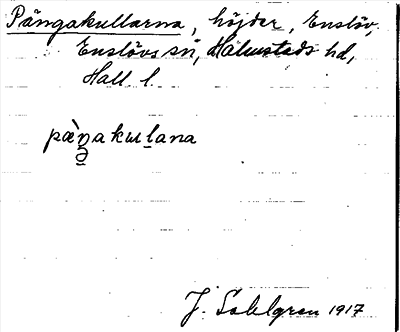 Pångakullarna, höjder, Enslöv,
Enslövs sn, Halmstads hd,
Hall. l.
pæ̀ŋakɯḻana
J. Sahlgren 1917